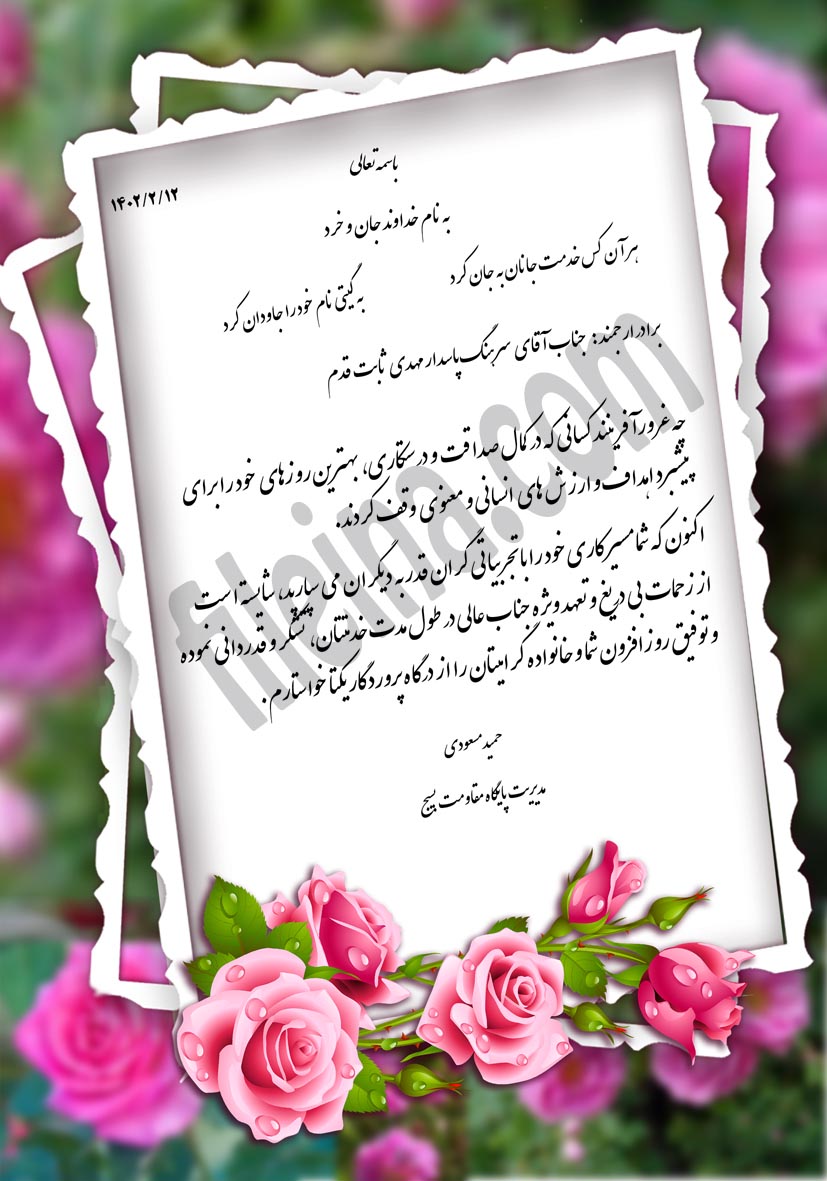 باسمه تعالی
۱۴۰۲/۲/۱۲
به نام خداوند جان و خرد
هر آن کس خدمت جانان به جان کرد
به گیتی نام خود را جاودان کرد
برادر ارجمند: جناب آقای سرهنگ پاسدار مهدی ثابت قدم
چه غرورآفرینند کسانی که در کمال صداقت و درستکاری، بهترین روزهای خود را برای
پیشبرد اهداف و ارزش های انسانی و معنوی وقف کردند.
اکنون که شما مسیر کاری خود را با تجربیاتی گران قدر به دیگران می سپارید، شایسته است
از زحمات بی دریغ و تعهد ویژه جناب عالی در طول مدت خدمتتان، تشکر و قدردانی نموده
و توفیق روز افزون شما و خانواده گرامیتان را از درگاه پروردگار یکتا خواستارم.
حمید مسعودی
مدیریت پایگاه مقاومت بسیج
fileina.com